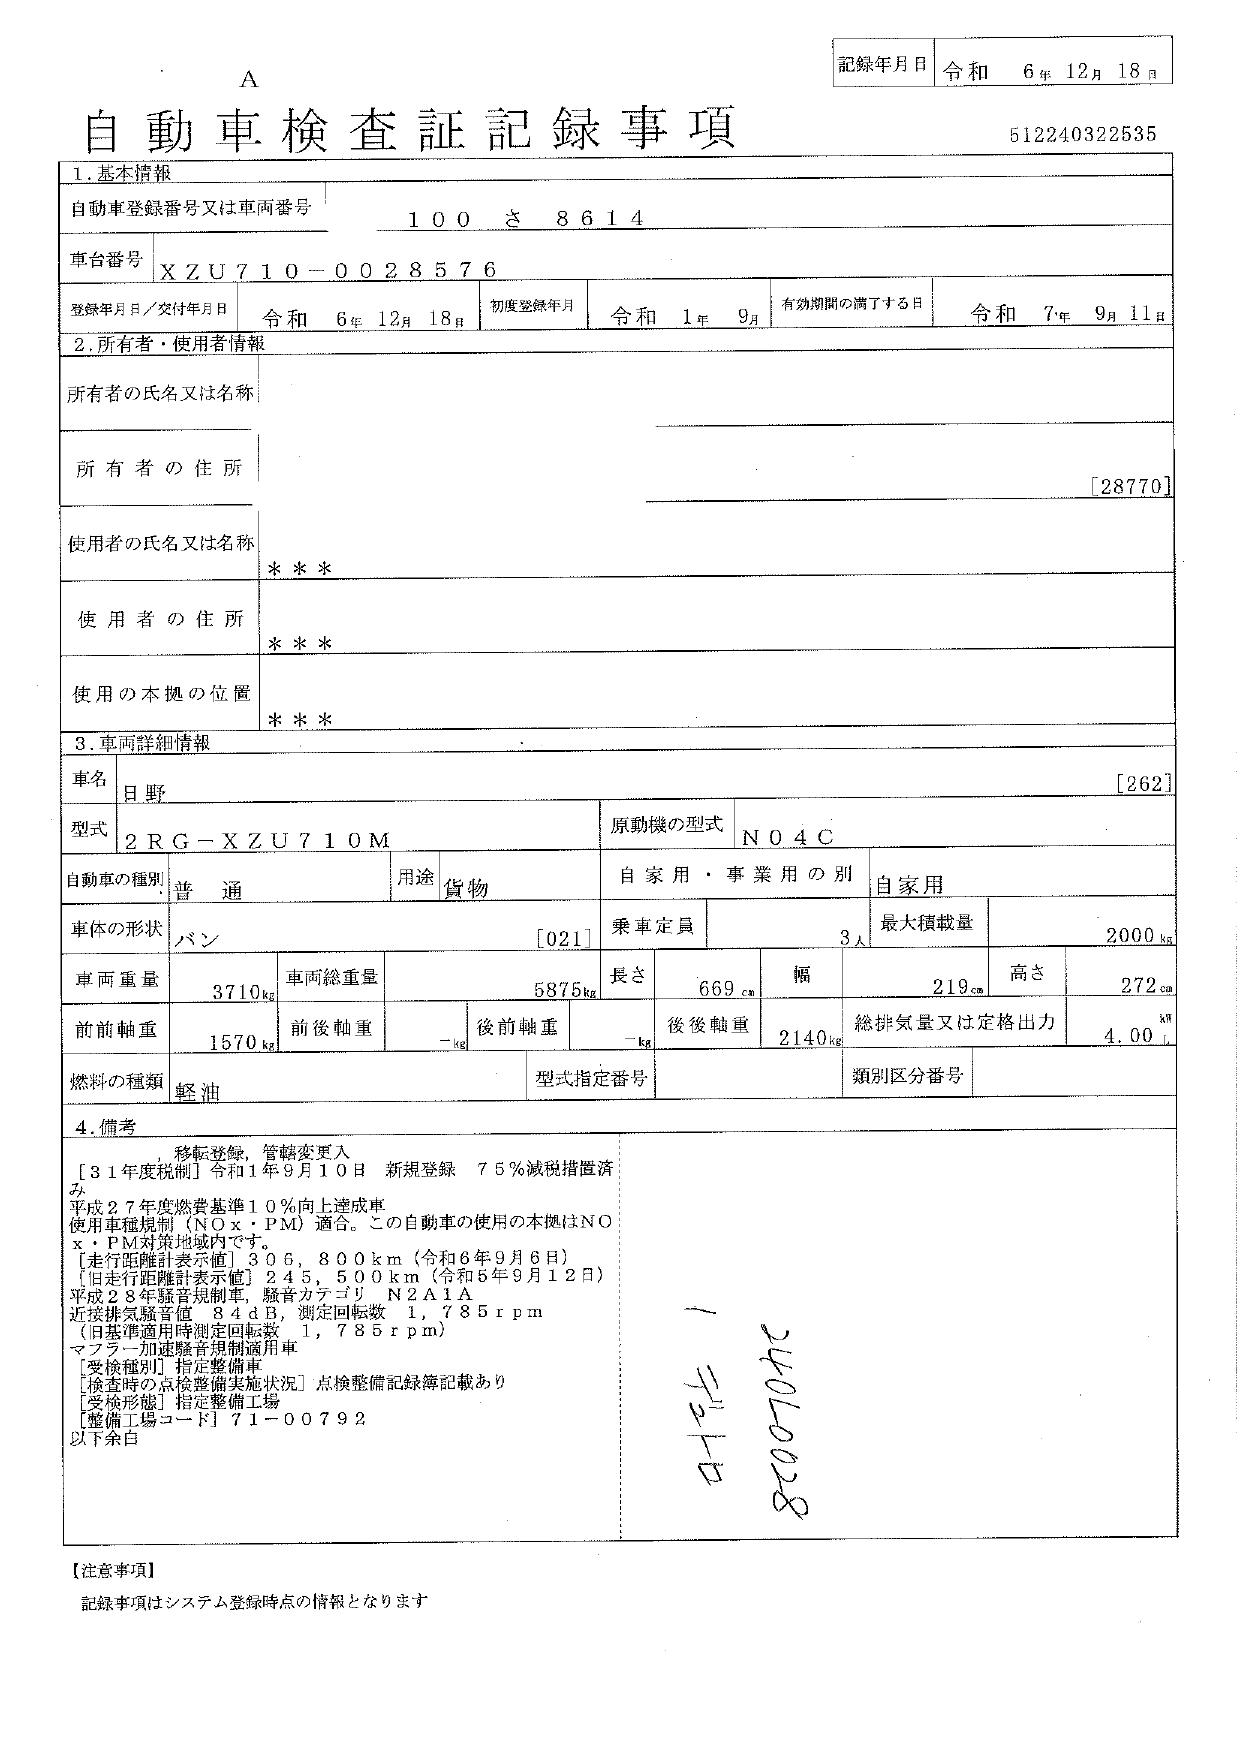 記録年月日 令和 6年 12月 18日
A
自動車検査証記録事項
512240322535
1.基本情報
自動車登録番号又は車両番号 100 さ 8614
車台番号 XZU710-0028576
登録年月日/交付年月日 令和 6年 12月 18日 初度登録年月 令和 1年 9月 有効期間の満了する日 令和 7年 9月 11日
2.所有者・使用者情報
所有者の氏名又は名称
所有者の住所 [28770]
使用者の氏名又は名称 ***
使用者の住所 ***
使用の本拠の位置 ***
3.車両詳細情報
車名 日野 [262]
型式 2RG-XZU710M 原動機の型式 N04C
自動車の種別 普通 用途 貨物 自家用・事業用の別 自家用
車体の形状 バン [021] 乗車定員 3人 最大積載量 2000kg
車両重量 3710kg 車両総重量 5875kg 長さ 669cm 幅 219cm 高さ 272cm
前前軸重 1570kg 前後軸重 -kg 後前軸重 -kg 後後軸重 2140kg 総排気量又は定格出力 4.00 kW L
燃料の種類 軽油 型式指定番号 類別区分番号
4.備考
,移転登録,管轄変更入
[31年度税制]令和1年9月10日 新規登録 75%減税措置済
み
平成27年度燃費基準10%向上達成車
使用車種規制(NOx・PM)適合。この自動車の使用の本拠はNO
x・PM対策地域内です。
[走行距離計表示値]306,800km(令和6年9月6日)
[旧走行距離計表示値]245,500km(令和5年9月12日)
平成28年騒音規制車,騒音カテゴリ N2A1A
近接排気騒音値 84dB,測定回転数 1,785rpm
(旧基準適用時測定回転数 1,785rpm)
マフラー加速騒音規制適用車
[受検種別]指定整備車
[検査時の点検整備実施状況]点検整備記録簿記載あり
[受検形態]指定整備工場
[整備工場コード]71-00792
以下余白
240L0028
デュトロ
【注意事項】
記録事項はシステム登録時点の情報となります